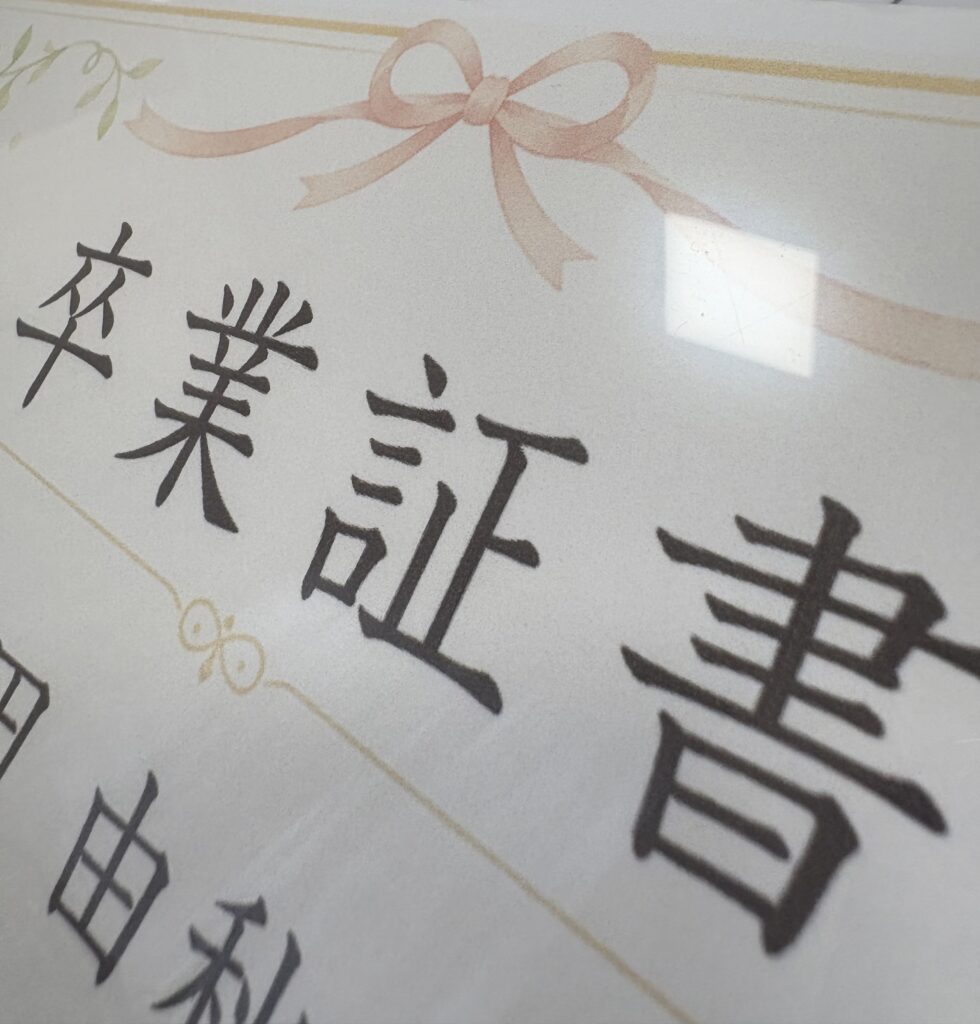 卒業証書
由利